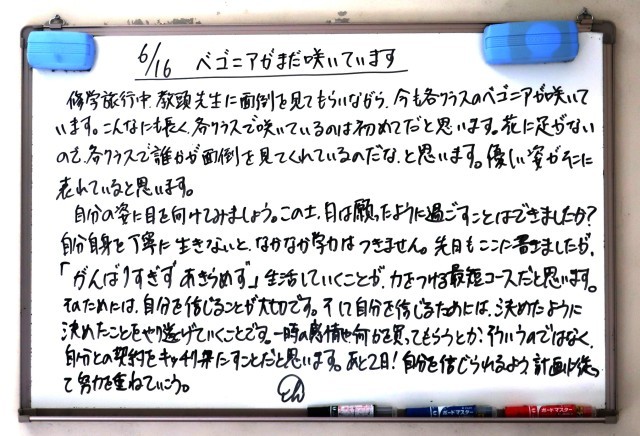 6/16 ベゴニアがまだ咲いています
修学旅行中、教頭先生に面倒を見てもらいながら、今も各クラスのベゴニアが咲いて
います。こんなにも長く、各クラスで咲いているのは初めてだと思います。花に足がない
ので、各クラスで誰かが面倒を見てくれているのだな、と思います。優しい姿がそこに
表れていると思います。
自分の姿に目を向けてみましょう。この土、日は願ったように過ごすことはできましたか?
自分自身を丁寧に生きないと、なかなか学力はつきません。先日もここに書きましたが、
「がんばりすぎず あきらめず」生活していくことが、力をつける最短コースだと思います。
そのためには、自分を信じることが大切です。そして自分を信じるためには、決めたように
決めたことをやり遂げていくことです。一時の感情や何かを買ってもらうとか、そういうのではなく、
自分との契約をキッチリ果たすことだと思います。あと2日!自分を信じられるよう計画に従っ
て努力を重ねていこう。
ボードマスター
ボードマスター